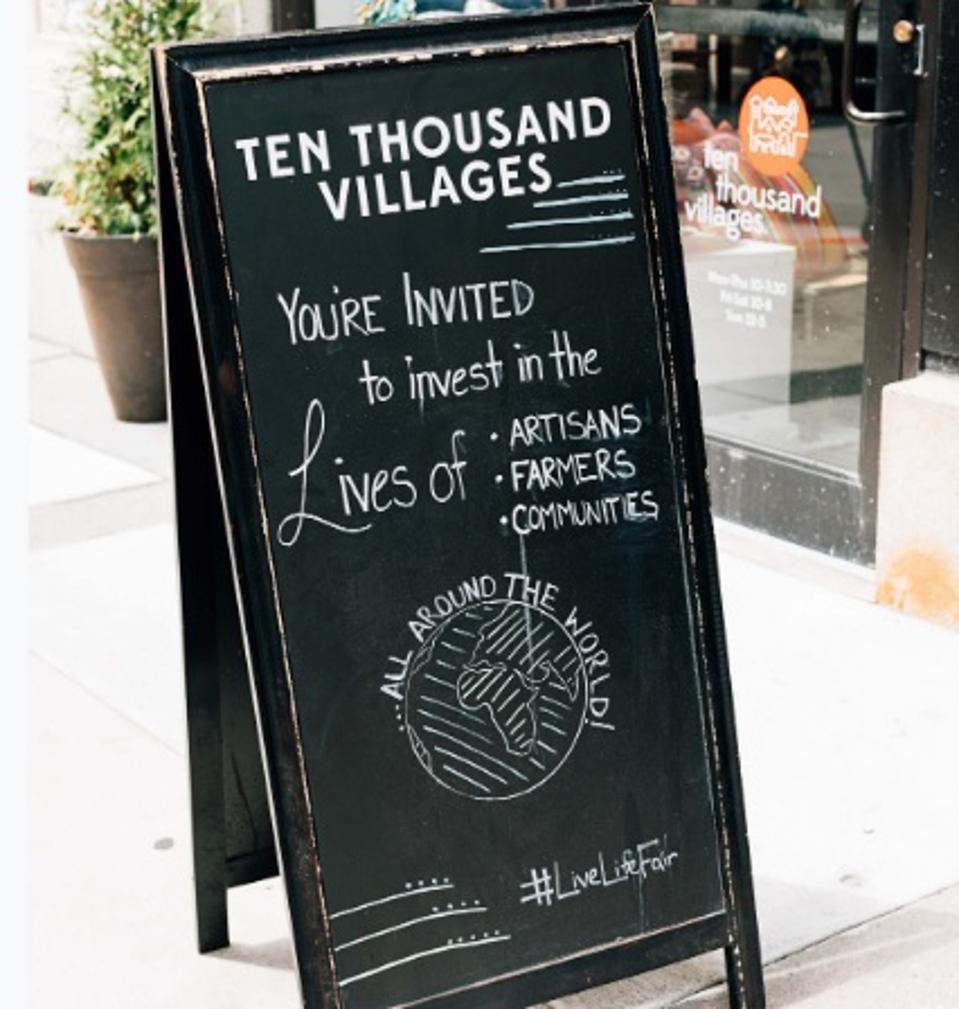 TEN THOUSAND
VILLAGES
YOU'RE INVITED
to invest in the
Lives of
• ARTISANS
• FARMERS
• COMMUNITIES
ALL AROUND THE WORLD!
#LiveLifeFair
ten
thousand
villages
Mon-Thu 10-7:30
Fri-Sat 10-8
Sun 12-5